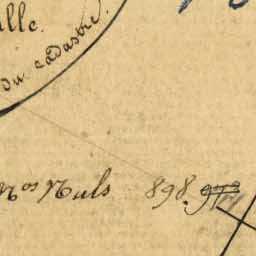 lle.
du cadastre.
Nos Nuls 898. 979